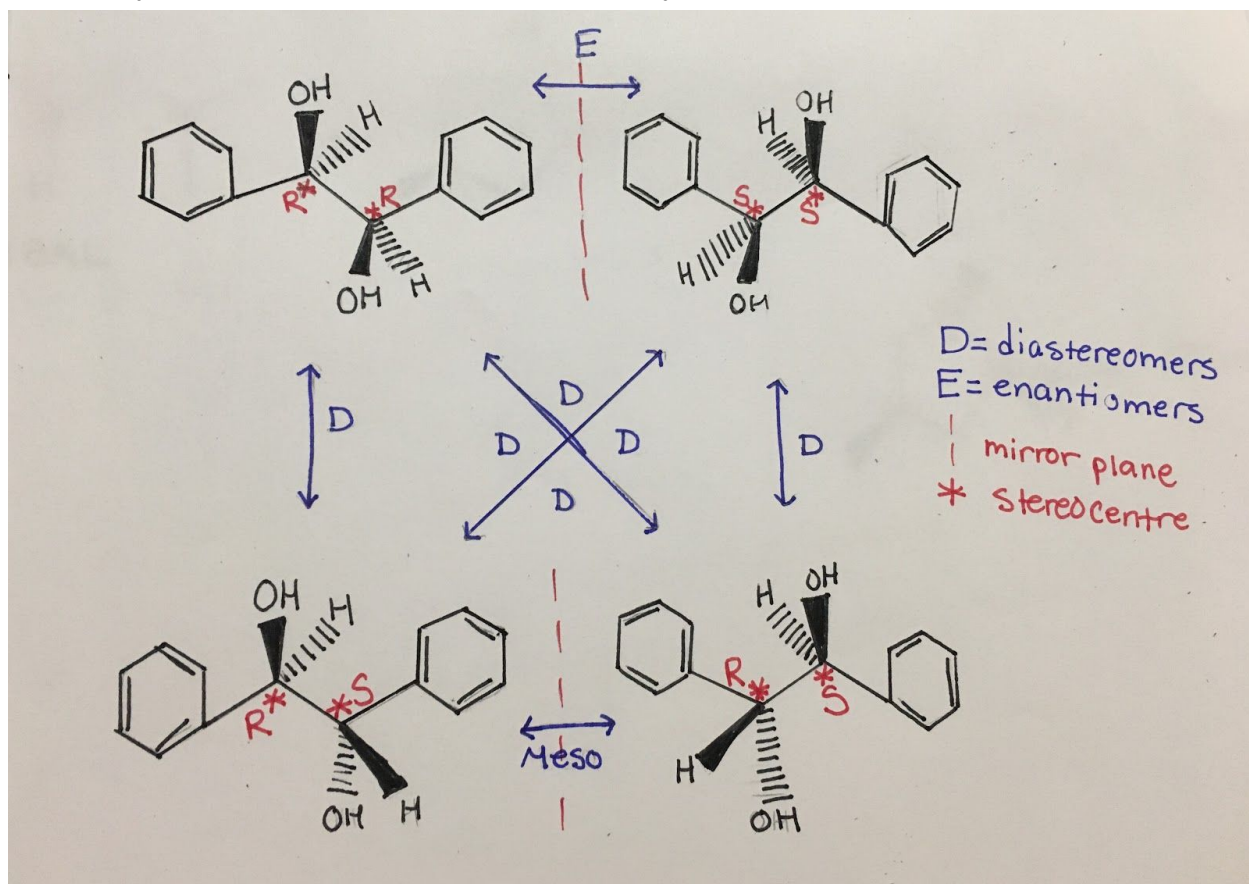 E
OH
H
R*
*R
OH
H
OH
H
S*
*S
H
OH
D
D
D
D
D
D
D= diastereomers
E= enantiomers
| mirror plane
* stereocentre
OH
H
R*
*S
OH
H
Meso
OH
H
R*
*S
H
OH